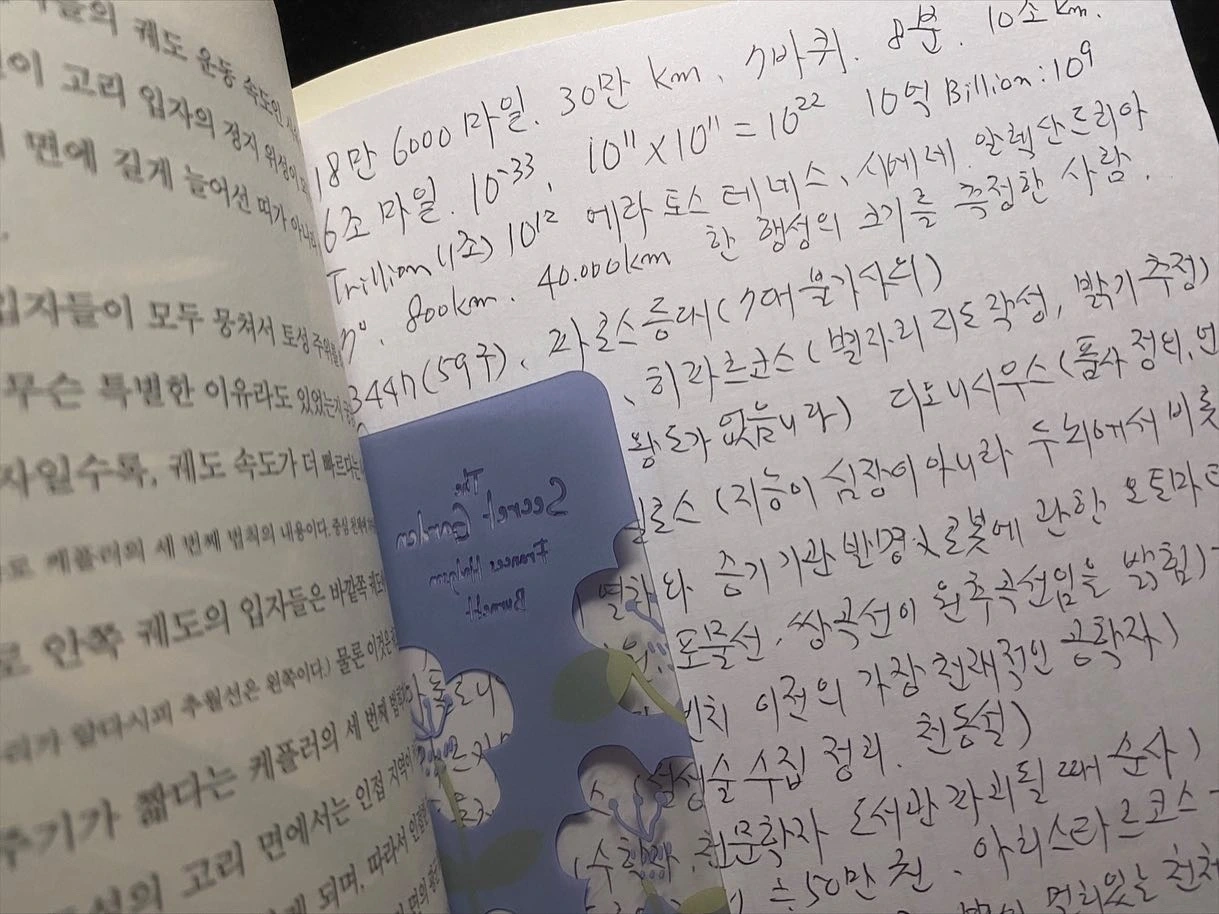 들의 궤도 운동 속도인
이 고리 입자의 정지 위성이
면에 길게 늘어선 띠가 아니라
입자들이 모두 뭉쳐서 토성 주위를
무슨 특별한 이유라도 있었는지
사일수록, 궤도 속도가 더 빠르다는
로 케플러의 세 번째 법칙의 내용이다.
로 안쪽 궤도의 입자들은 바깥쪽 궤도
리가 알다시피 추월선은 왼쪽이다.) 물론 이것은
주기가 짧다는 케플러의 세 번째 법칙
성의 고리 면에서는 인접 지역이
게 되며, 따라서 인접한
18만 6000마일. 30만 km. 7바퀴. 8분. 10조 km.
6조 마일. 10⁻³³. 10¹¹ × 10¹¹ = 10²² 10억 Billion : 10⁹
Trillion (1조) 10¹² 에라토스테네스, 시에네. 알렉산드리아
7°. 800km. 40.000km 한 행성의 크기를 측정한 사람.
344n (59쪽). 파로스 등대 (7대 불가사의)
, 히파르코스 (별자리 지도 작성, 밝기 추정)
왕도가 없습니다) 디오니시우스 (품사 정의, 언
필로스 (지능이 심장이 아니라 두뇌에서 비롯
열차와 증기기관 발명. 로봇에 관한 오토마타
원. 포물선. 쌍곡선이 원추곡선임을 밝힘)
빈치 이전의 가장 천재적인 공학자)
(점성술 수집 정리. 천동설)
(수학자, 천문학자 도서관 파괴될 때 순사)
50만 권. 아리스타르코스
멀리 있는 천체
The
Secret Garden
Frances Hodgson
Burnett